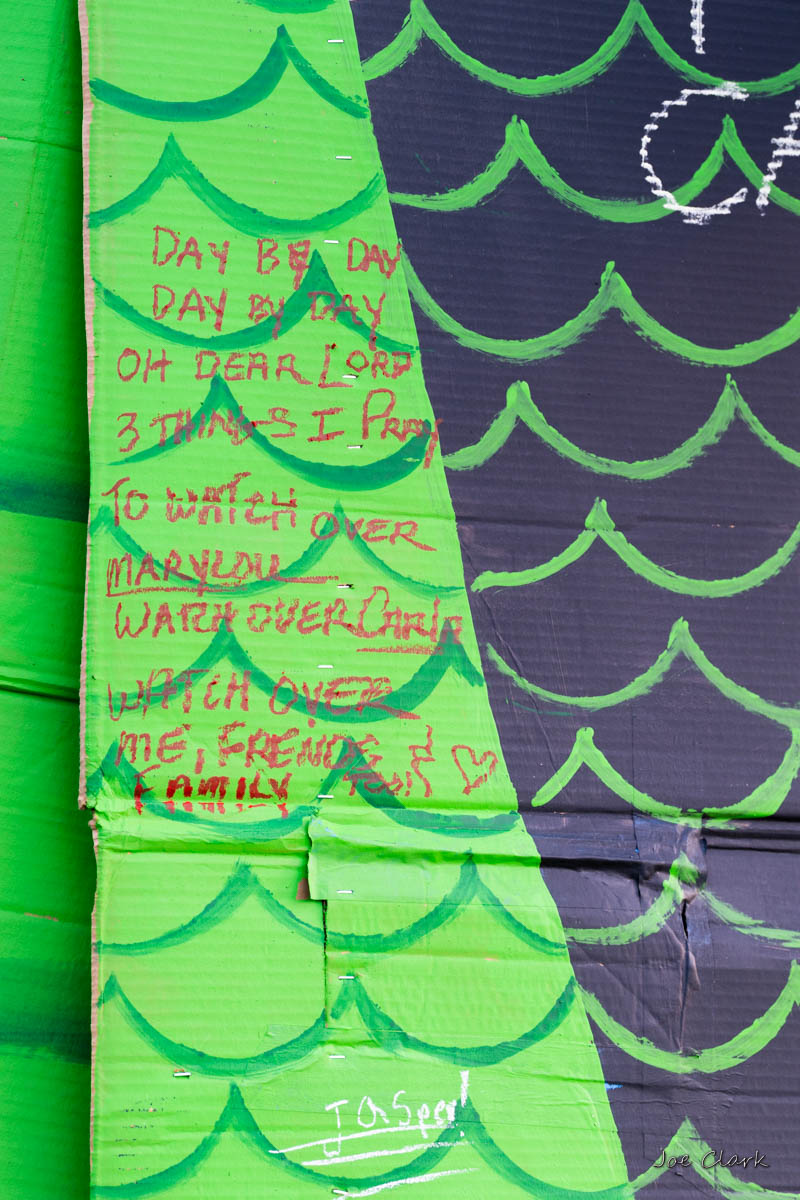 CA
DAY BY DAY
DAY BY DAY
OH DEAR LORD
3 THINGS I PRAY
TO WATCH OVER
MARYLOU
WATCH OVER CARLA
WATCH OVER
ME, FRENDS &
FAMILY TOO!
JASper!
Joe Clark